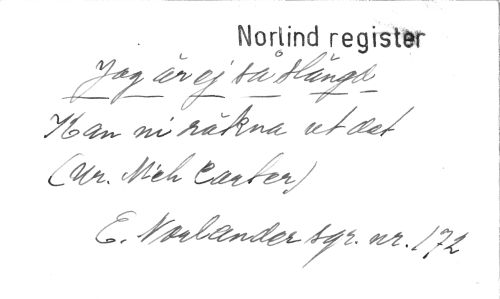 Norlind register
Jag är ej så slängd
Kan ni räkna ut det
(Ur. Nick Carter)
E. Norlander sgr. nr. 172